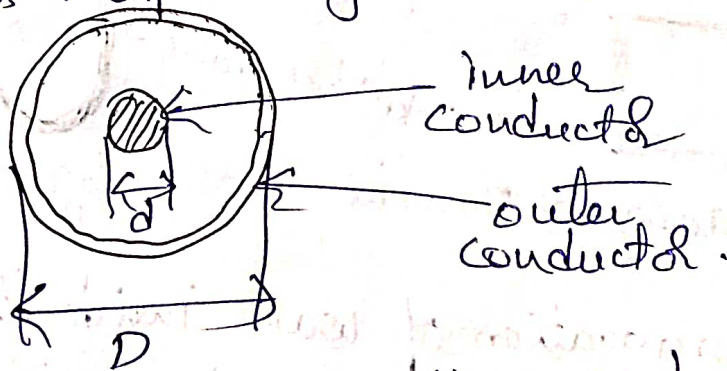 inner
conductor
d
outer
conductor.
D